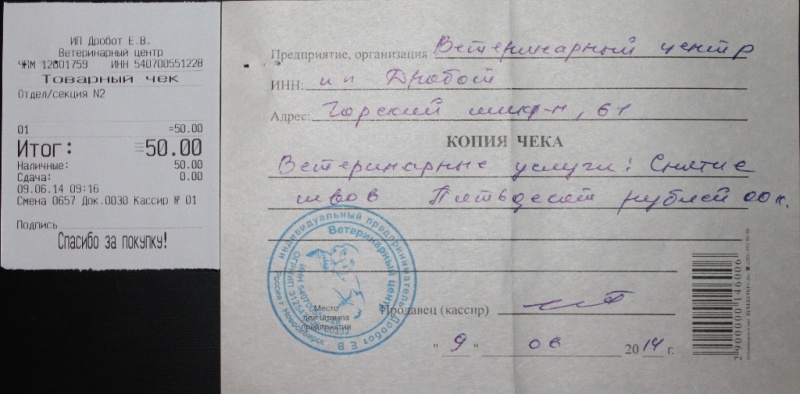 ИП Дробот Е.В.
Ветеринарный центр
ЧЯМ 12001759 ИНН 540700551228
Товарный чек
Отдел/секция N2
01 =50.00
Итог: =50.00
Наличные: 50.00
Сдача: 0.00
09.06.14 09:16
Смена 0657 Док.0030 Кассир № 01
Подпись
Спасибо за покупку!
Предприятие, организация Ветеринарный центр
ИНН: ип Дробот
Адрес: Горский микр-н, 61
КОПИЯ ЧЕКА
Ветеринарные услуги: Снятие
швов Пятьдесят рублей 00 к.
индивидуальный предприниматель Дробот Е В
Ветеринарный центр
Место
для штампа
предприятия
Продавец (кассир)
"9" 06 2014 г.
2900000146006